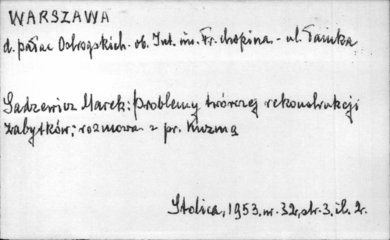 WARSZAWA
d. pałac Ostrogskich - ob. Int. im. Fr. Chopina - ul. Tamka
Sadzewicz Marek: Problemy twórczej rekonstrukcji
zabytków; rozmowa z pr. Kuzmą
Stolica, 1953. nr. 32, str. 3, il. 2.